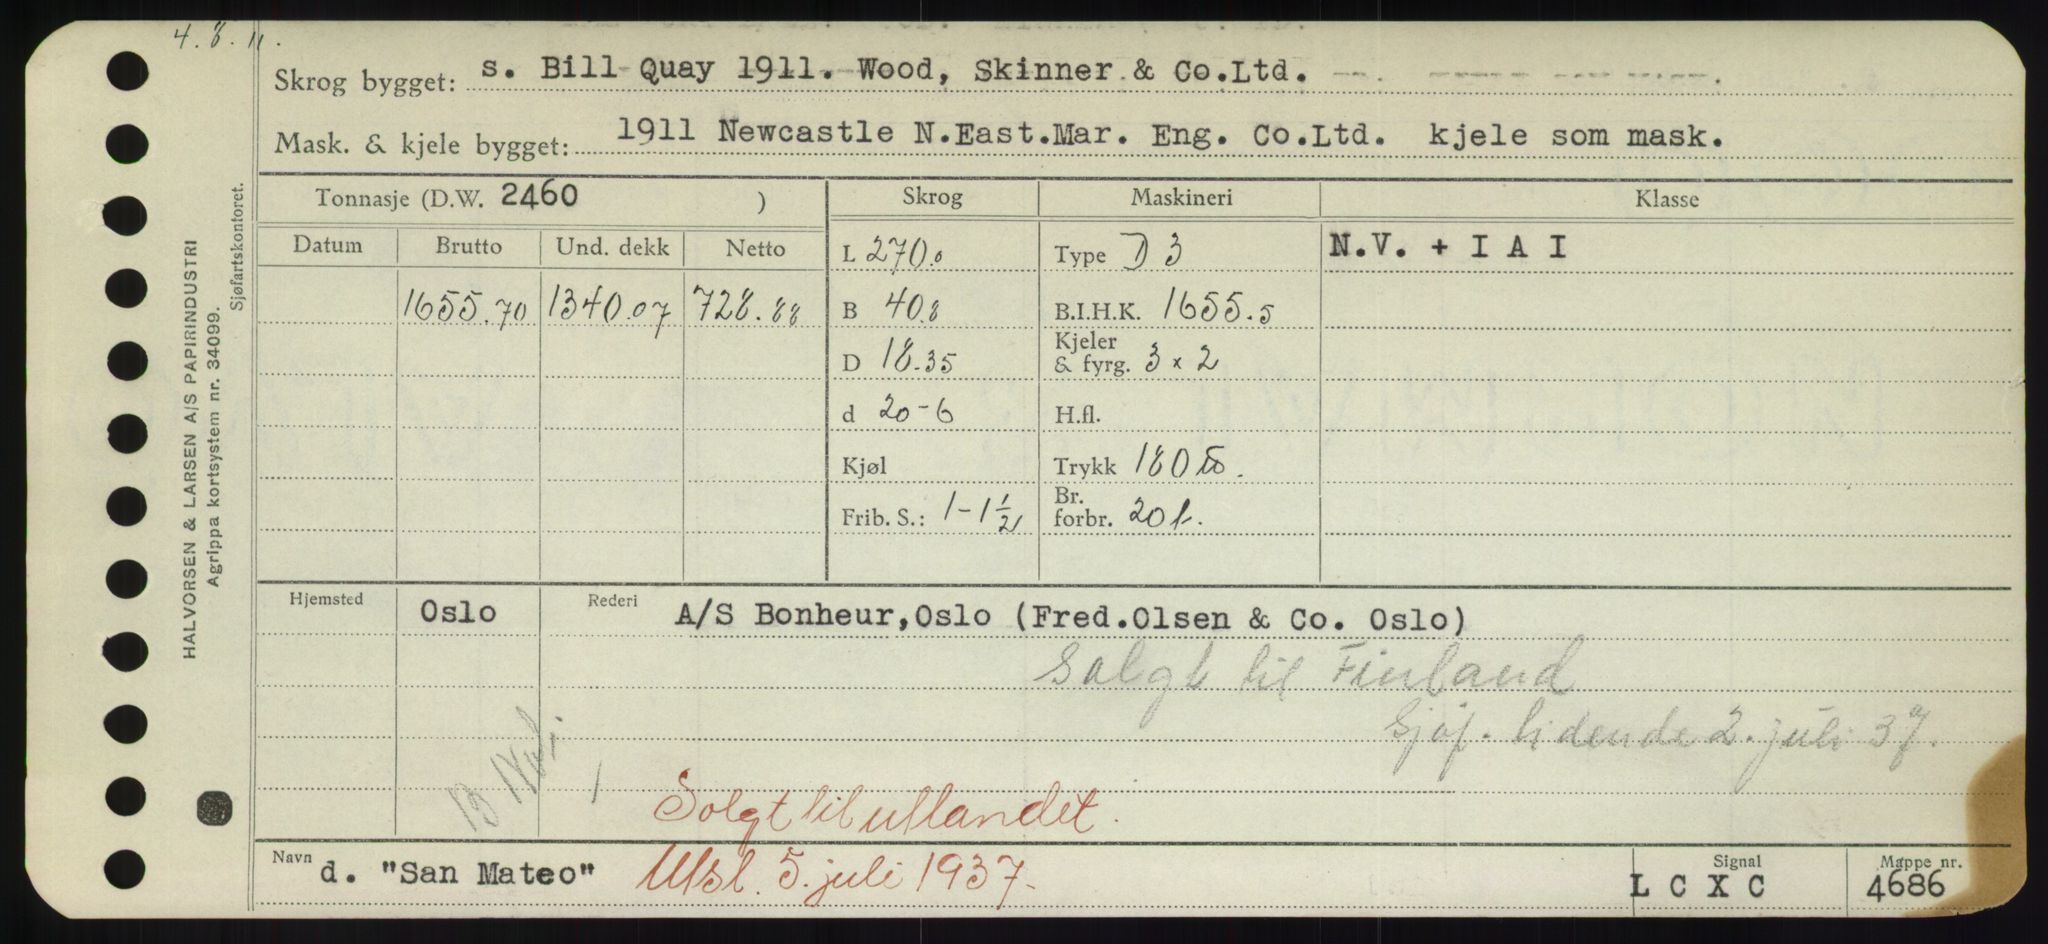 4.8.11.
Skrog bygget: s. Bill Quay 1911. Wood, Skinner & Co.Ltd.
Mask. & kjele bygget: 1911 Newcastle N.East.Mar. Eng. Co.Ltd. kjele som mask.
Tonnasje (D.W. 2460 ) Skrog Maskineri Klasse
Datum Brutto Und. dekk Netto L 270.0 Type D 3 N.V. + I A I
1655.70 1340.07 728.88 B 40.8 B.I.H.K. 1655.5
D 18.35 Kjeler & fyrg. 3 x 2
d 20-6 H.fl.
Kjøl Trykk 180
Frib. S.: 1-1½ Br. forbr. 20 t.
Hjemsted Oslo Rederi A/S Bonheur,Oslo (Fred.Olsen & Co. Oslo)
Solgt til Finland
Sjøf. tidende 2. juli 37.
Solgt til utlandet.
Navn d. "San Mateo" Utsl. 5. juli 1937. Signal L C X C Mappe nr. 4686
HALVORSEN & LARSEN A/S PAPIRINDUSTRI
Agrippa kortsystem nr. 34099.
Sjøfartskontoret.